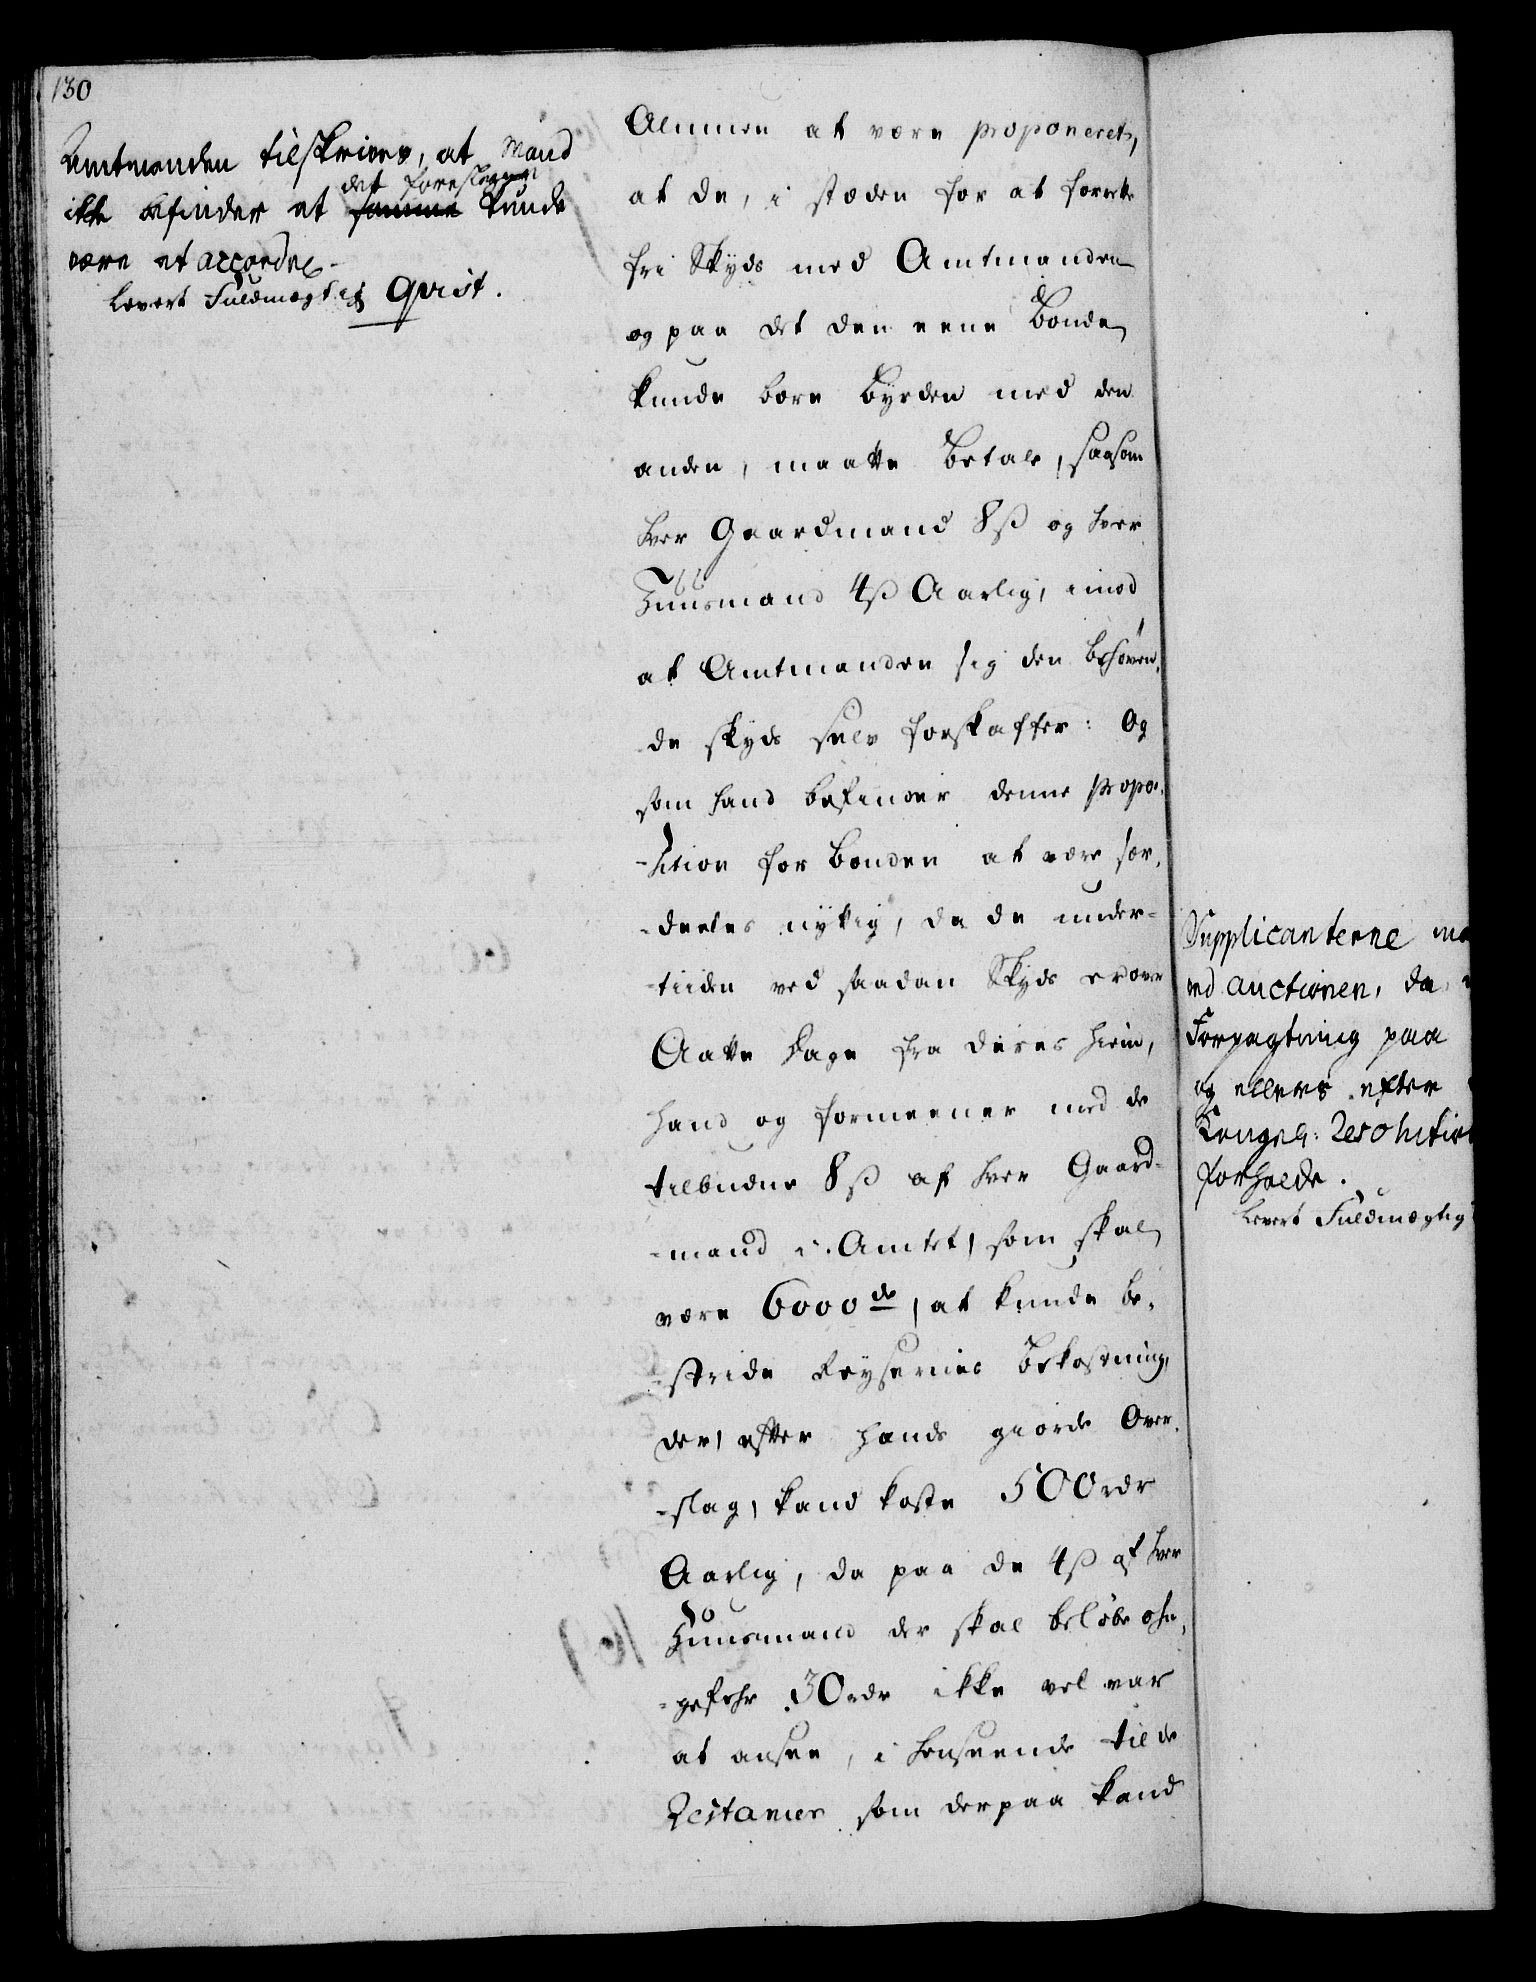 130
Amtmanden tilskrives, at Mand
ikke befinder at det foreslagne kunde
være et accordel.
Levert Fuldmægtig Qvist.
Almuen at være proponeret,
at de, i stæden for at forrette
fri Skyds med Amtmanden
og paa det den eene Bonde
kunde bære Byrden med den
anden, maatte betale, saasom
hver Gaardmand 8 ß og hver
Huusmand 4 ß Aarlig, imod
at Amtmanden sig den behøven-
de skyds selv forskaffer: Og
som hand befinder denne propo-
-sition for Bonden at være sær-
-deeles nyttig, da de under-
-tiiden ved saadan Skyds ere over
Aatte Dage fra deres hiem,
hand og formeener med de
tilbudne 8 ß af hver Gaard-
-mand i Amtet, som skal
være 6000de, at kunde be-
-stride Reysernes Bekostning,
der, efter hands giorde Over-
-slag, kand koste 500 rdr
Aarlig, da paa de 4 ß af hver
Huusmand der skal beløbe ohn-
-gefehr 30 rdr ikke vel var
at ansee, i henseende til de
Restancer som derpaa kand
Supplicanterne
ved auctionen, da
Forpagtning paa
og ellers efter
Kongel: Resolution
forholde.
Levert Fuldmægtig